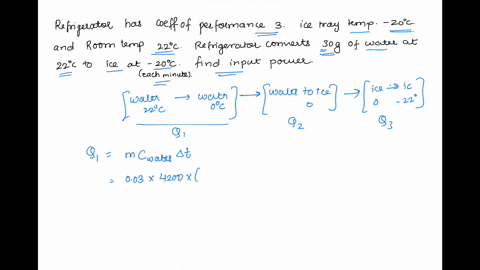 Refrigerator has coeff of performance 3. ice may temp. -20°C
and Room temp 22°C. Refrigerator converts 30g of water at
22°C to ice at -20°C. find input power
(each minute).
[water → water] → [water to ice] → [ice → ic]
22°C 0°C 0 0 -22°
Q1 Q2 Q3
Q1 = m Cwater Δt
= 0.03 × 4200 × (